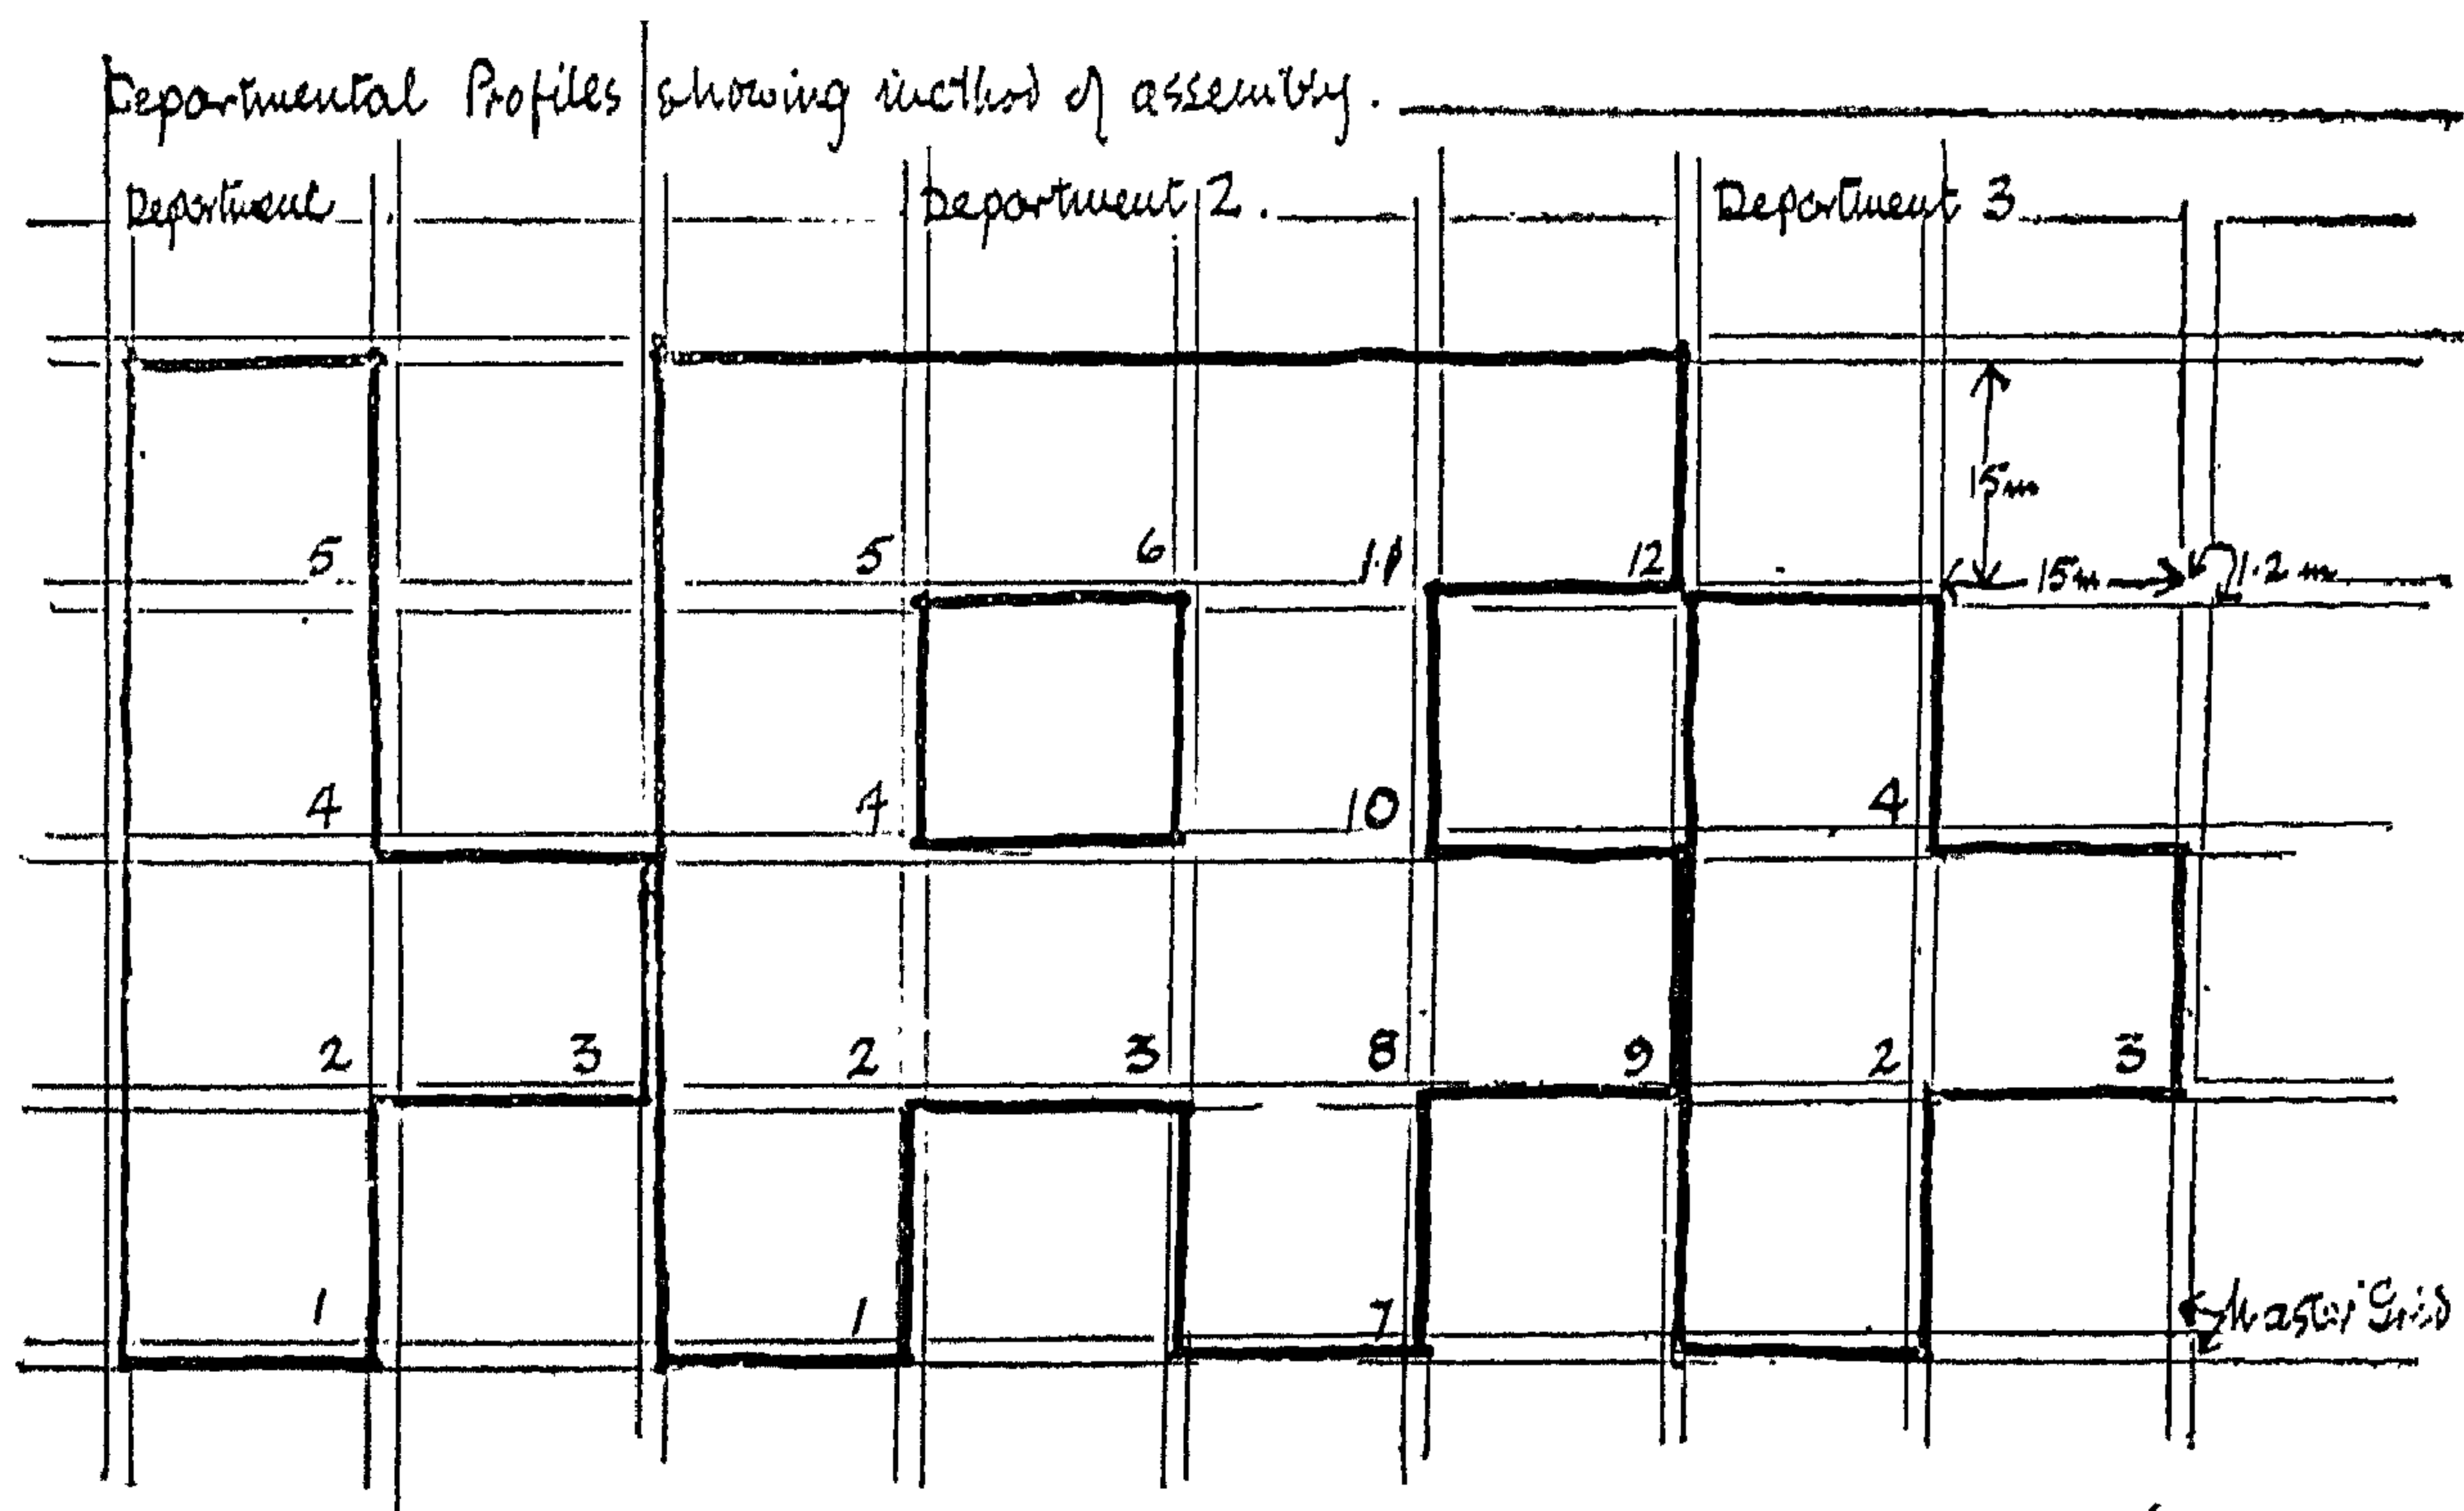 Departmental Profiles showing method of assembly.
Department Department 2. Department 3
15m
5 5 6 11 12 15m 1.2 m
4 4 10 4
2 3 2 3 8 9 2 3
1 1 7 Master Grid